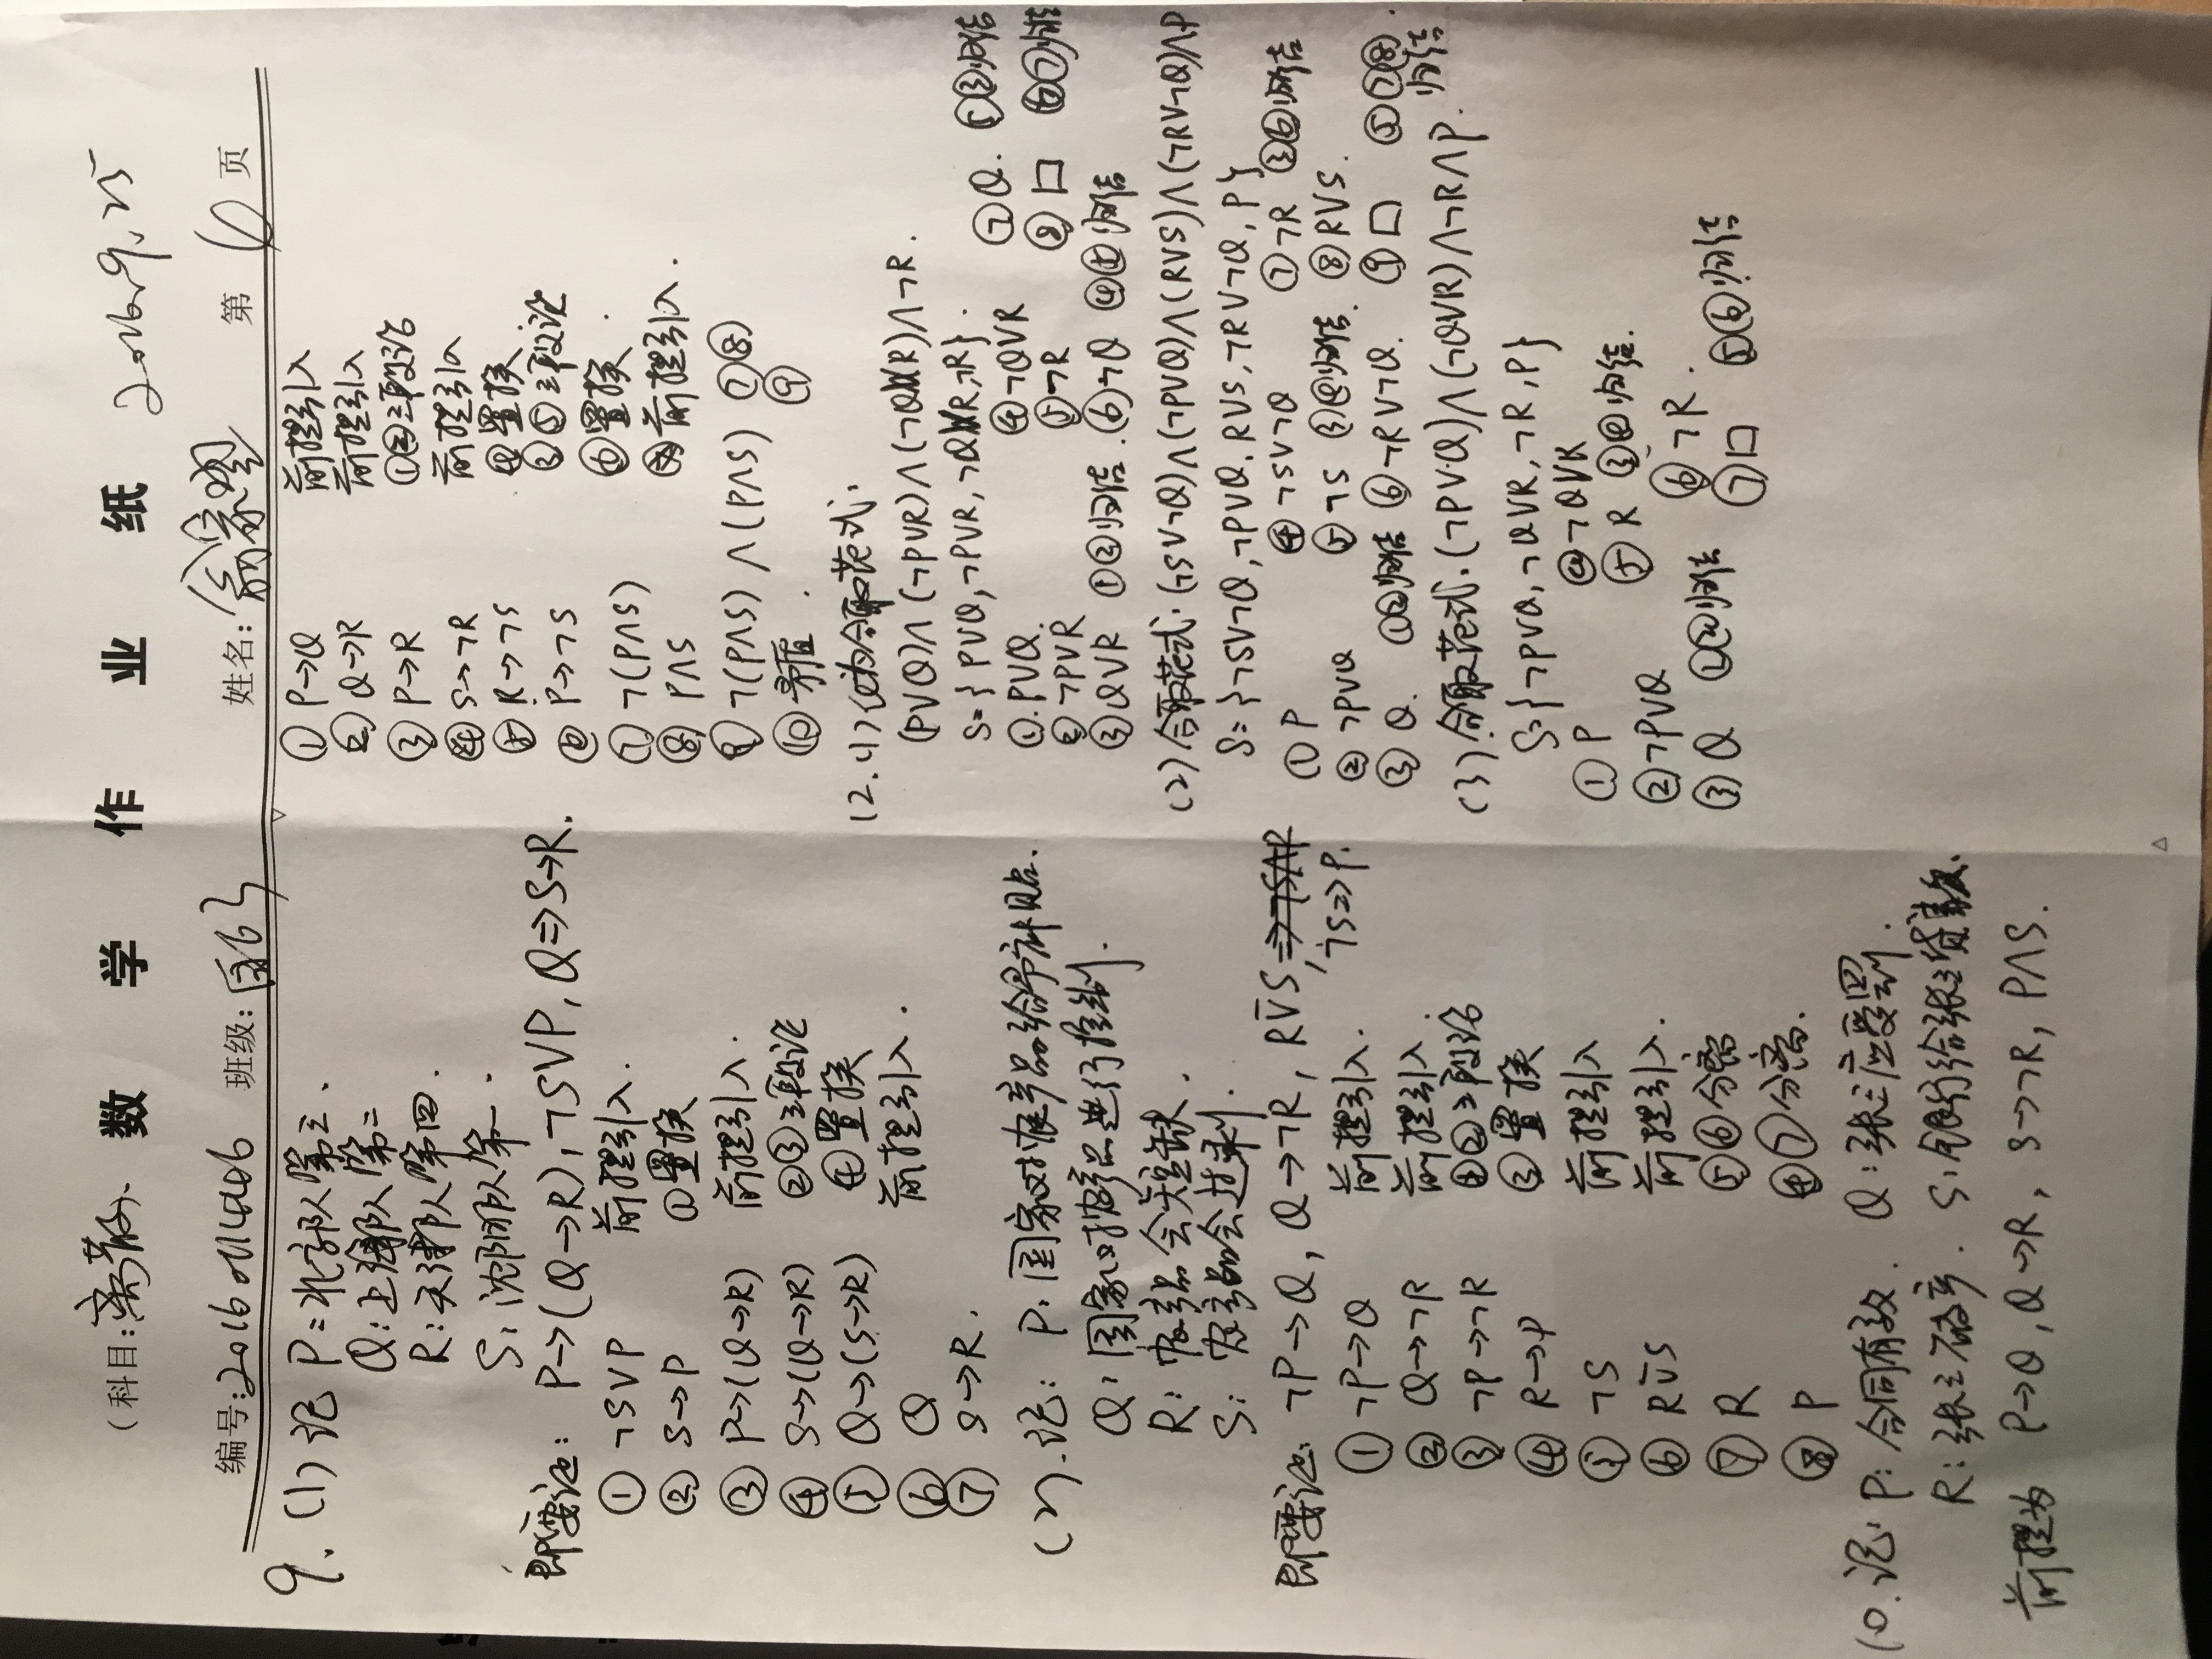 (科目:离散) 数学作业纸 2016.9.25
编号:2016011406 班级:自63 姓名: 家 第6页
9.(1)记 P:北京队第三.
Q:上海队第二
R:天津队第四.
S:沈阳队第一.
即要证: P→(Q→R),¬S∨P,Q⇒S→R.
① ¬S∨P 前提引入.
② S→P ①置换
③ P→(Q→R) 前提引入.
④ S→(Q→R) ②③三段论
⑤ Q→(S→R) ④置换
⑥ Q 前提引入.
⑦ S→R.
(2).记: P:国家对农产品给予补贴.
Q:国家对农产品进行控制.
R:农产品会短缺.
S:农产品会过剩.
即要证: ¬P→Q, Q→¬R, R⊽S, ⇒¬S∧P
,¬S⇒P.
① ¬P→Q 前提引入.
② Q→¬R 前提引入.
③ ¬P→¬R ①②三段论
④ R→P ③置换
⑤ ¬S 前提引入
⑥ R⊽S 前提引入.
⑦ R ⑤⑥分离
⑧ P ④⑦分离.
10.记: P:合同有效. Q:张三应受罚.
R:张三破产. S:银行给张三贷款.
前提为 P→Q,Q→R, S→¬R, P∧S.
① P→Q 前提引入
② Q→R 前提引入
③ P→R ①②三段论
④ S→¬R 前提引入
⑤ R→¬S ④置换.
⑥ P→¬S ③⑤三段论
⑦ ¬(P∧S) ⑥置换.
⑧ P∧S 前提引入.
⑨ ¬(P∧S)∧(P∧S) ⑦⑧
⑩ 矛盾. ⑨
12.(1)化为合取范式:
(P∨Q)∧(¬P∨R)∧(¬Q∨R)∧¬R.
S={P∨Q,¬P∨R,¬Q∨R,¬R}.
①.P∨Q. ④¬Q∨R ⑦Q. ⑤③归结
②¬P∨R ⑤¬R ⑧□ ⑥⑦归结
③Q∨R ①②归结. ⑥¬Q ④⑤归结
(2)合取范式:(¬S∨¬Q)∧(¬P∨Q)∧(R∨S)∧(¬R∨¬Q)∧P
S={¬S∨¬Q,¬P∨Q,R∨S,¬R∨¬Q,P}
① P ④ ¬S∨¬Q ⑦¬R ③⑥归结
② ¬P∨Q ⑤¬S ③④归结. ⑧R∨S.
③ Q. ①②归结 ⑥¬R∨¬Q. ⑨□ ⑤⑦⑧.
归结
(3).合取范式.(¬P∨Q)∧(¬Q∨R)∧¬R∧P.
S={¬P∨Q,¬Q∨R,¬R,P}
① P ④¬Q∨R
⑤ R ③④归结.
②¬P∨Q
⑥ ¬R.
③ Q ①②归结
⑦□ ⑤⑥归结